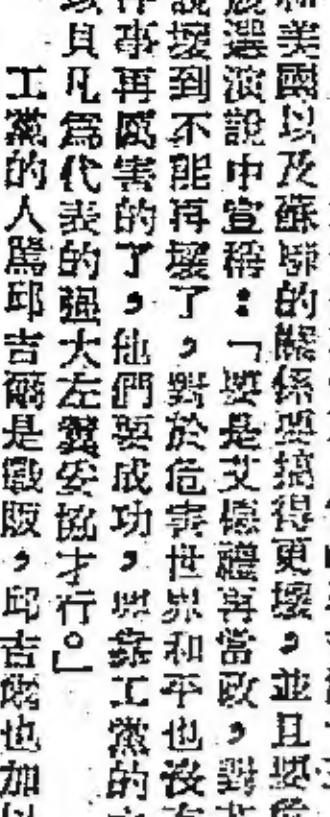 美國以及蘇聯的關係要搞得更壞，並且要
選演說中宣稱：「要是艾德禮再當政，對
壞到不能再壞了，對於危害世界和平也沒
事再厲害的了，他們要成功，要靠工黨的
貝凡爲代表的强大左翼妥協才行。」
工黨的人罵邱吉爾是戰販，邱吉爾也加